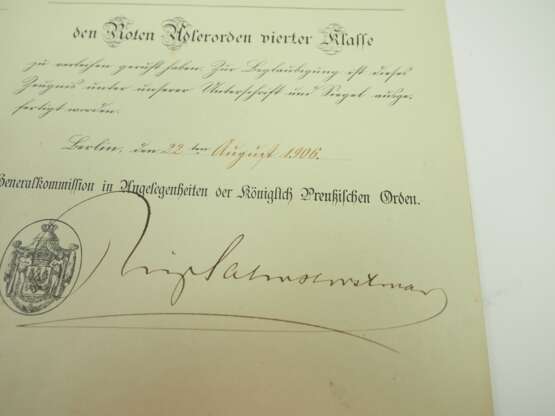 den Roten Adlerorden vierter Klasse
zu verleihen geruht haben. Zur Beglaubigung ist dieses
Zeugnis unter unserer Unterschrift und Siegel ausge-
fertigt worden.
Berlin, den 22ten August 1906.
Generalkommission in Angelegenheiten der Königlich Preußischen Orden.